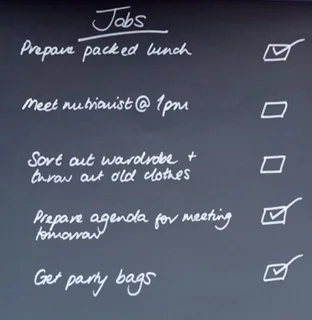 Jobs
Prepare packed lunch
Meet nutrionist @ 1pm
Sort out wardrobe +
throw out old clothes
Prepare agenda for meeting
tomorrow
Get party bags